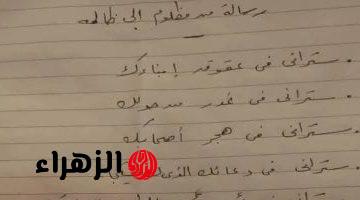 رسالة من مظلوم إلى ظالمه
. ستراني في عقوق إبناءك
. ستراني في غدر من حولك
. ستراني في هجر أصحابك
. ستراني في دعائك الذي
الزهراء